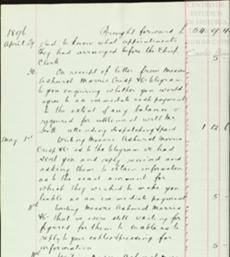 1896 Brought forward £ 54 9 4
April 29 glad to know what appointments
they had arranged before the Chief
Clerk 5
30 On receipt of letter from Messrs
Ashurst Morris Crisp & Co telegram
to you enquiring whether you would
agree to an immediate payment
to the extent of any balance
required for settlement with Mr
attending 1 12 6
May 1st Writing Messrs Ashurst Morris
Crisp & Co is the telegram we had
sent you and reply received and
asking them to obtain information
as to the exact amount for
which they wished to make you
liable as an immediate payment 5
Writing Messrs Ashurst Morris &
Co that we were still waiting for
figures from them to enable us to
reply to your cables & pressing for
information 5